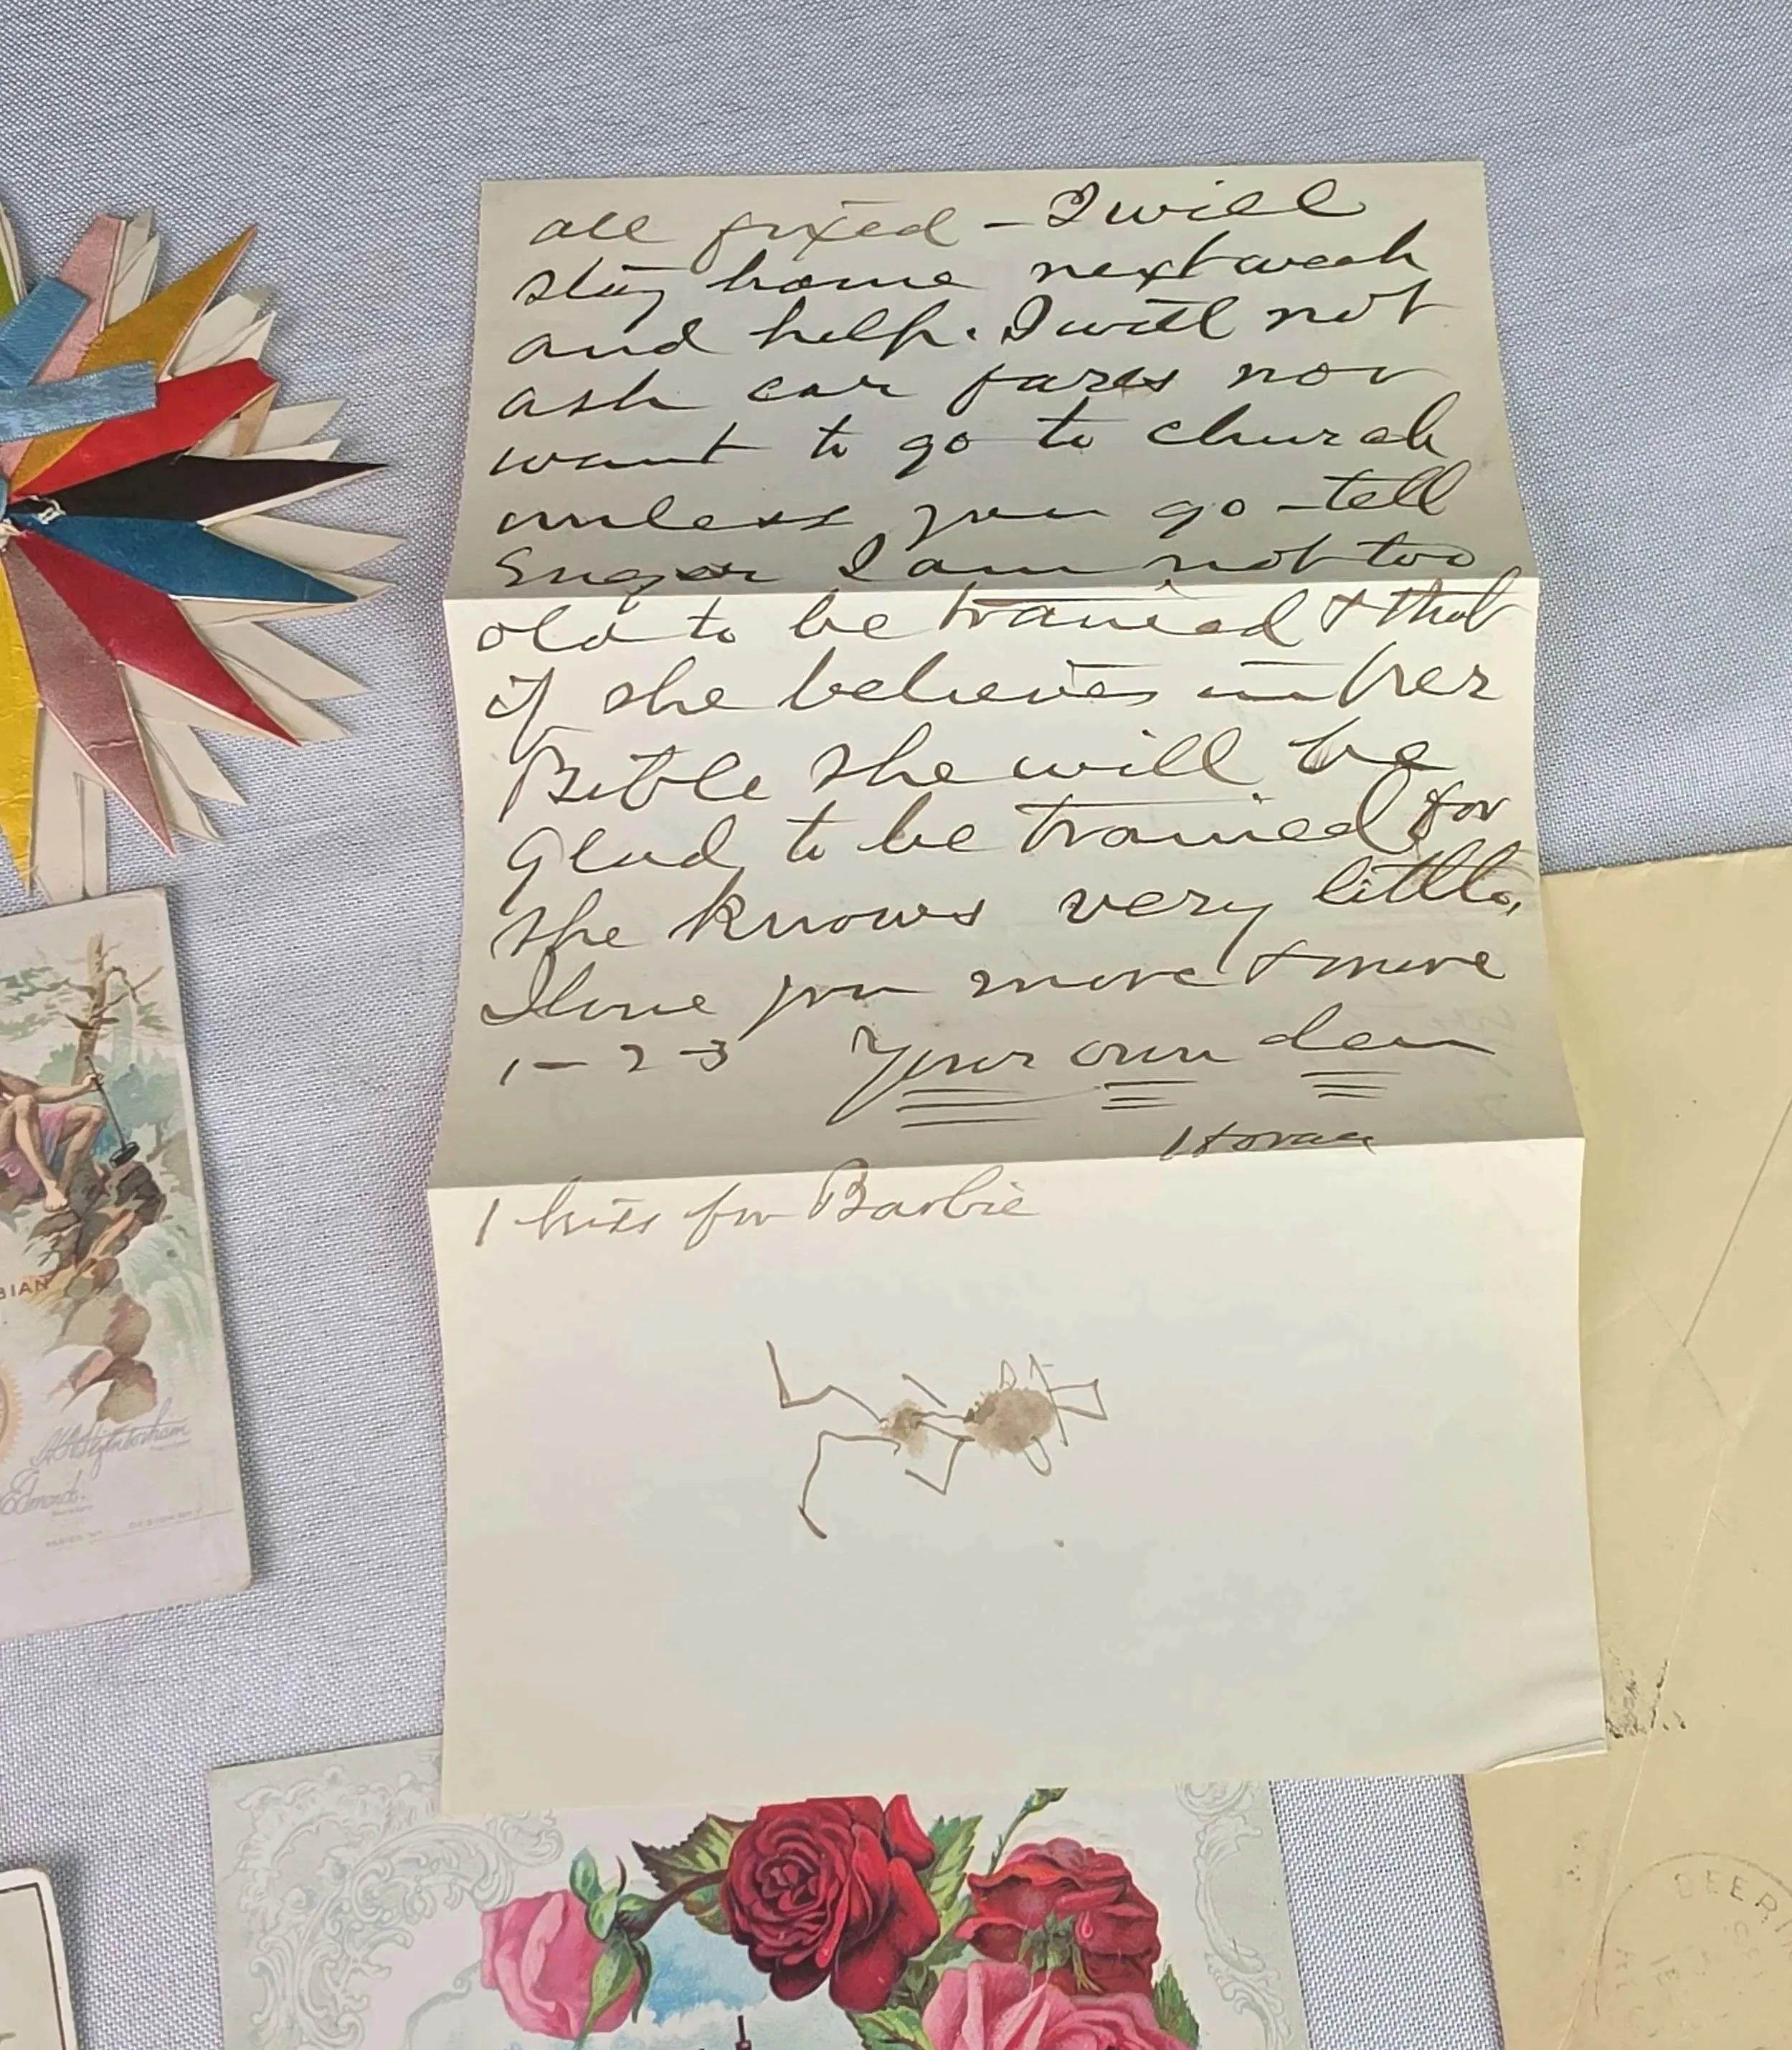 all fixed – I will
stay home next week
and help. I will not
ask car fares nor
want to go to church
unless you go – tell
I am not too
old to be trained & that
if she believes in her
Bible she will be
glad to be trained for
she knows very little,
I love you more & more
1 – 2 – 3 Your own dear
Horace
1 kiss for Barbie
BIAN
Edmonds.
DEERI